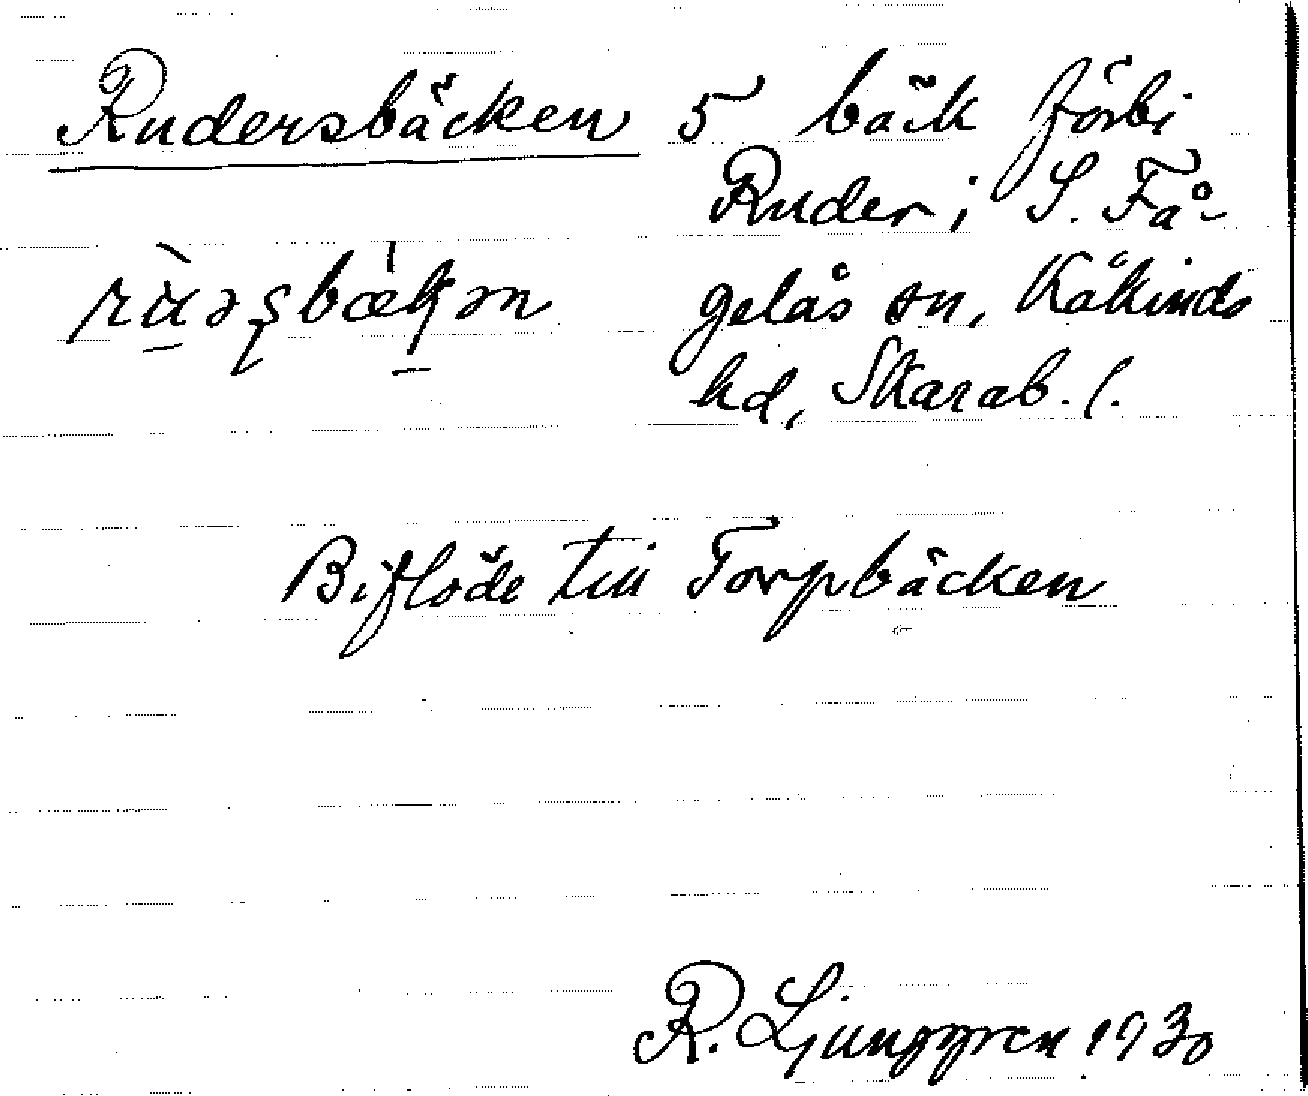 Rudersbäcken 5 bäck förbi
Ruder i S. Få-
gelås sn, Kåkinds
hd, Skarab. l.
Biflöde till Torpbäcken
R. Ljunggren 1930